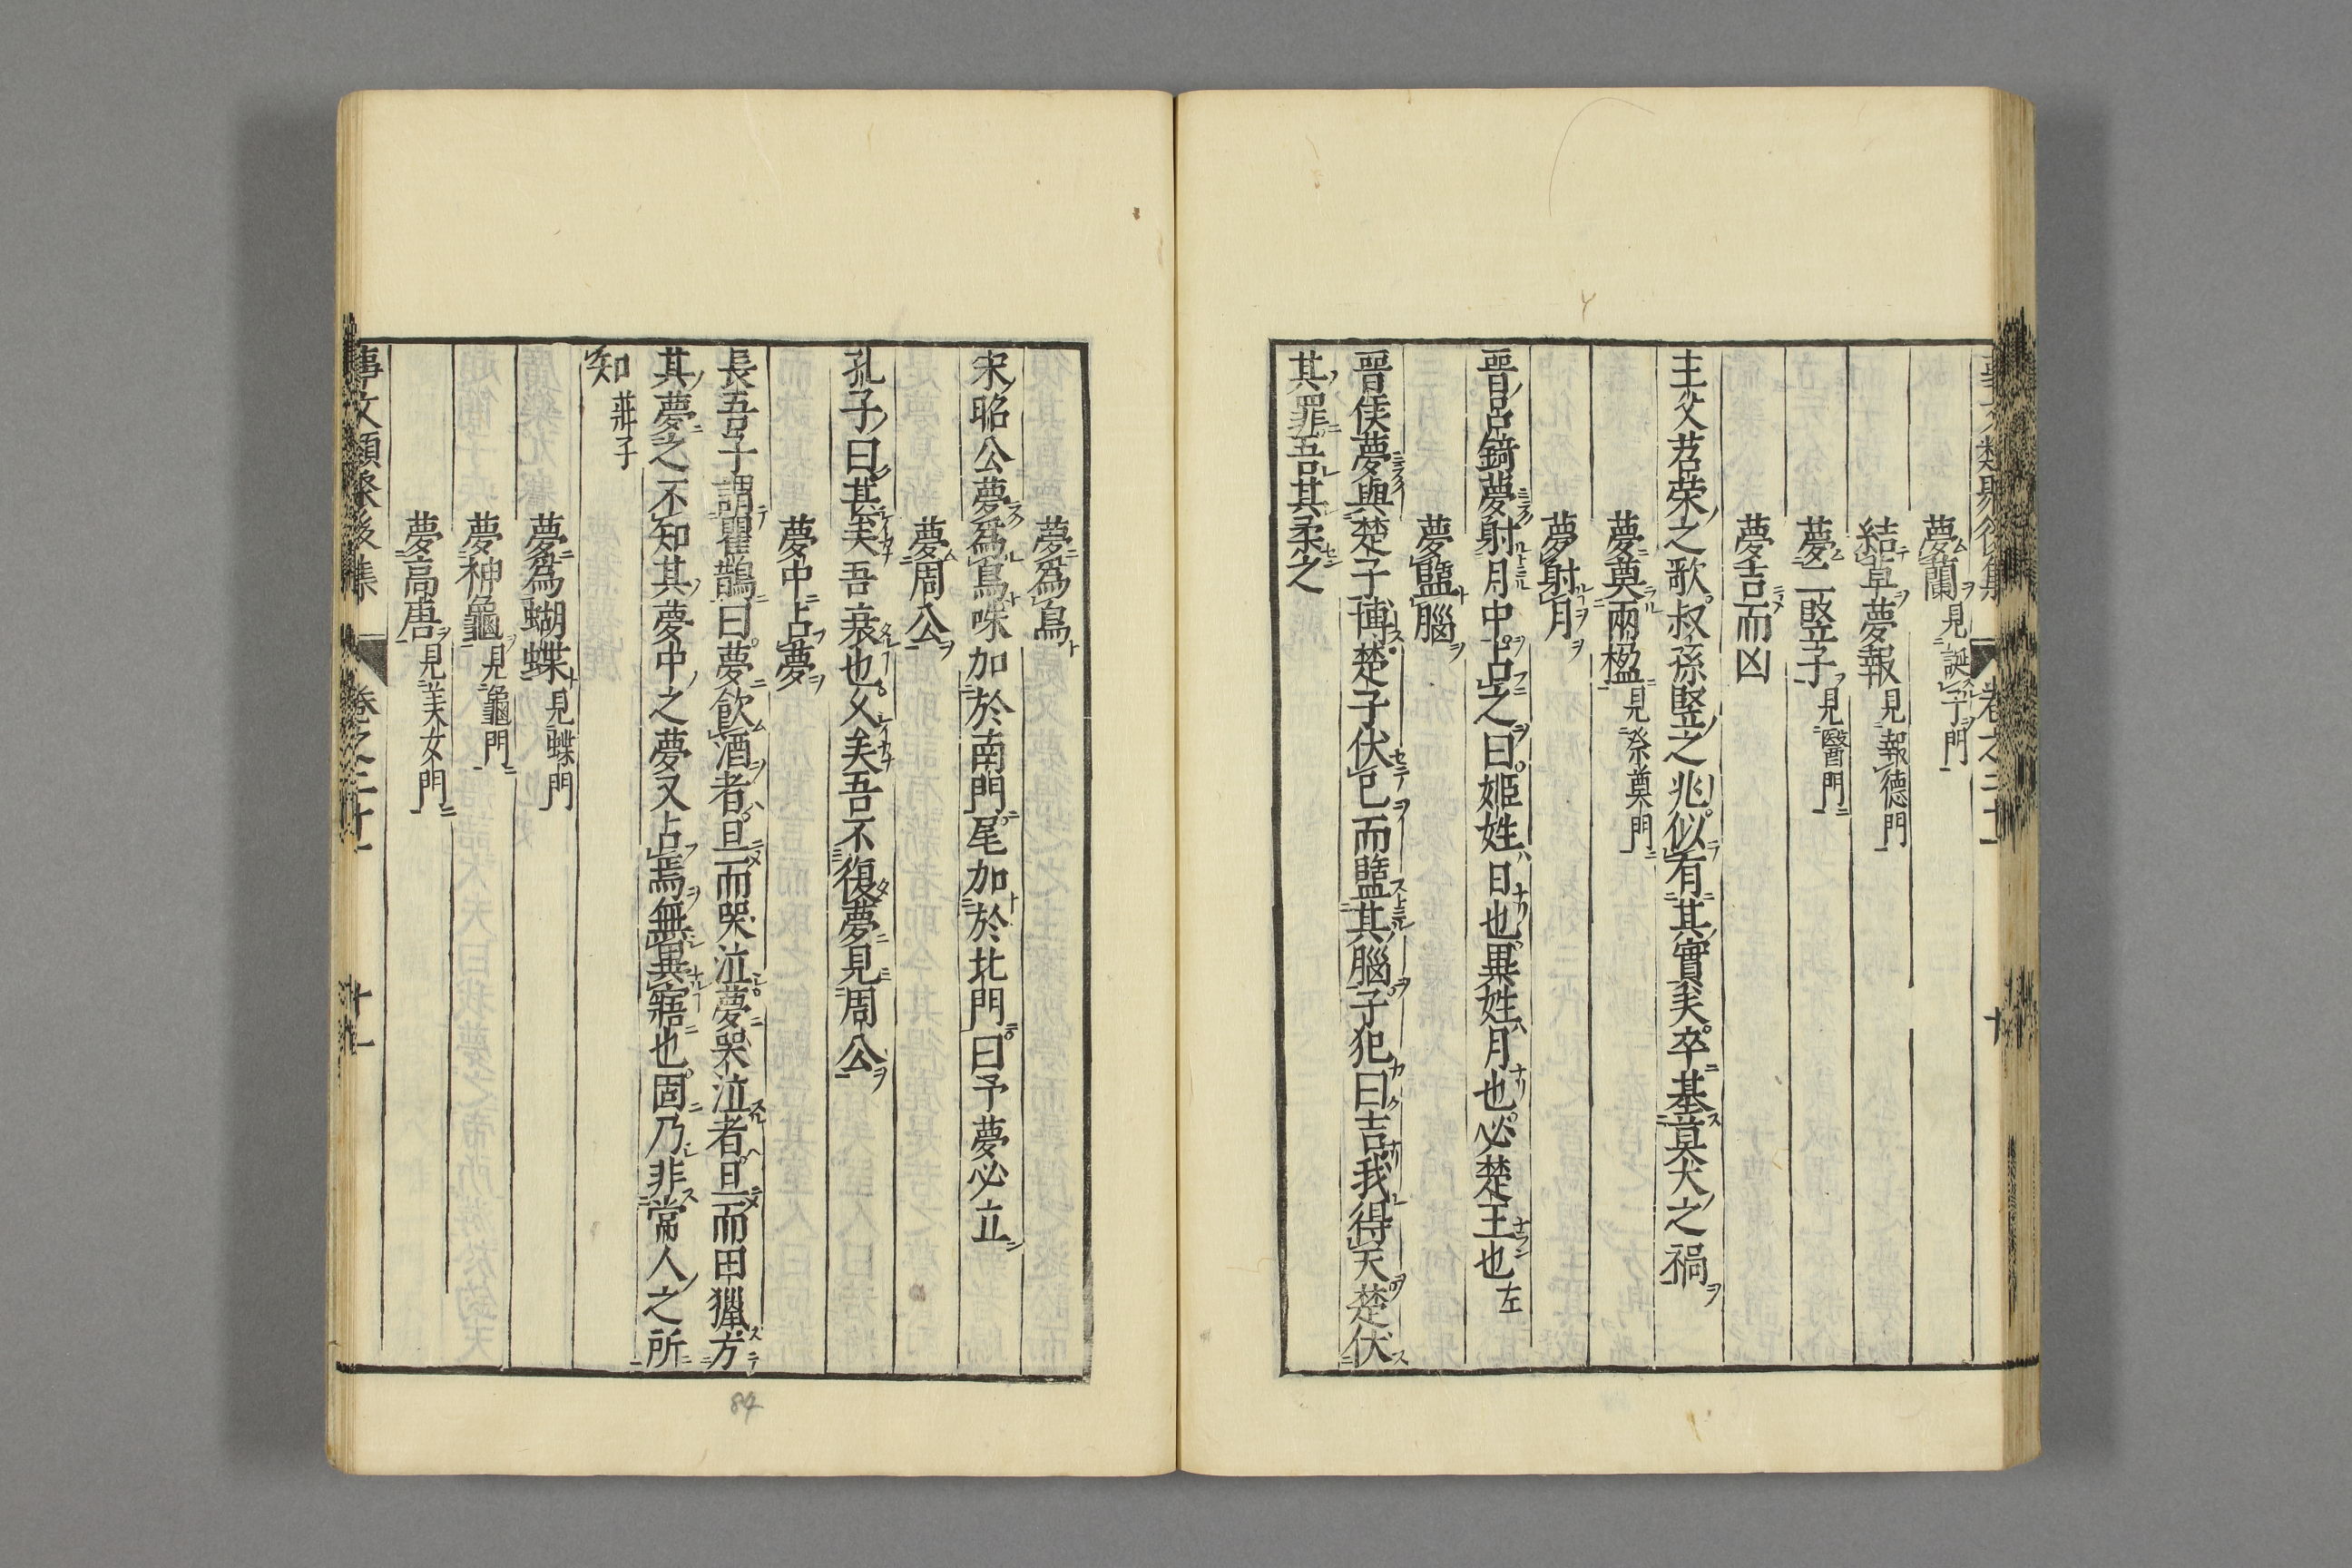 夢蘭見誕子門
結草夢報見報德門
夢二竪子見醫門
夢吉而凶
主父君荣之歌叔孫竪之兆似有其實矣卒基莫大之禍
夢奠兩楹見祭奠門
夢射月
晋呂錡夢射月中占之曰姬姓日也異姓月也必楚王也左
夢盬腦
晋侯夢與楚子博楚子伏已而盬其腦子犯曰吉我得天楚伏
其罪吾其柔之
夢爲烏
宋昭公夢爲烏咮加於南門尾加於北門曰予夢必立
夢周公
孔子曰甚矣吾衰也乆矣吾不復夢見周公
夢中占夢
長吾子謂瞿鵲曰夢飲酒者旦而哭泣夢哭泣者旦而田獵方
其夢之不知其夢中之夢又占焉無異寤也固乃非常人之所
知莊子
夢爲蝴蝶見蝶門
夢神龜見龜門
夢高唐見美女門
事文類聚後集 卷之二十一 十一